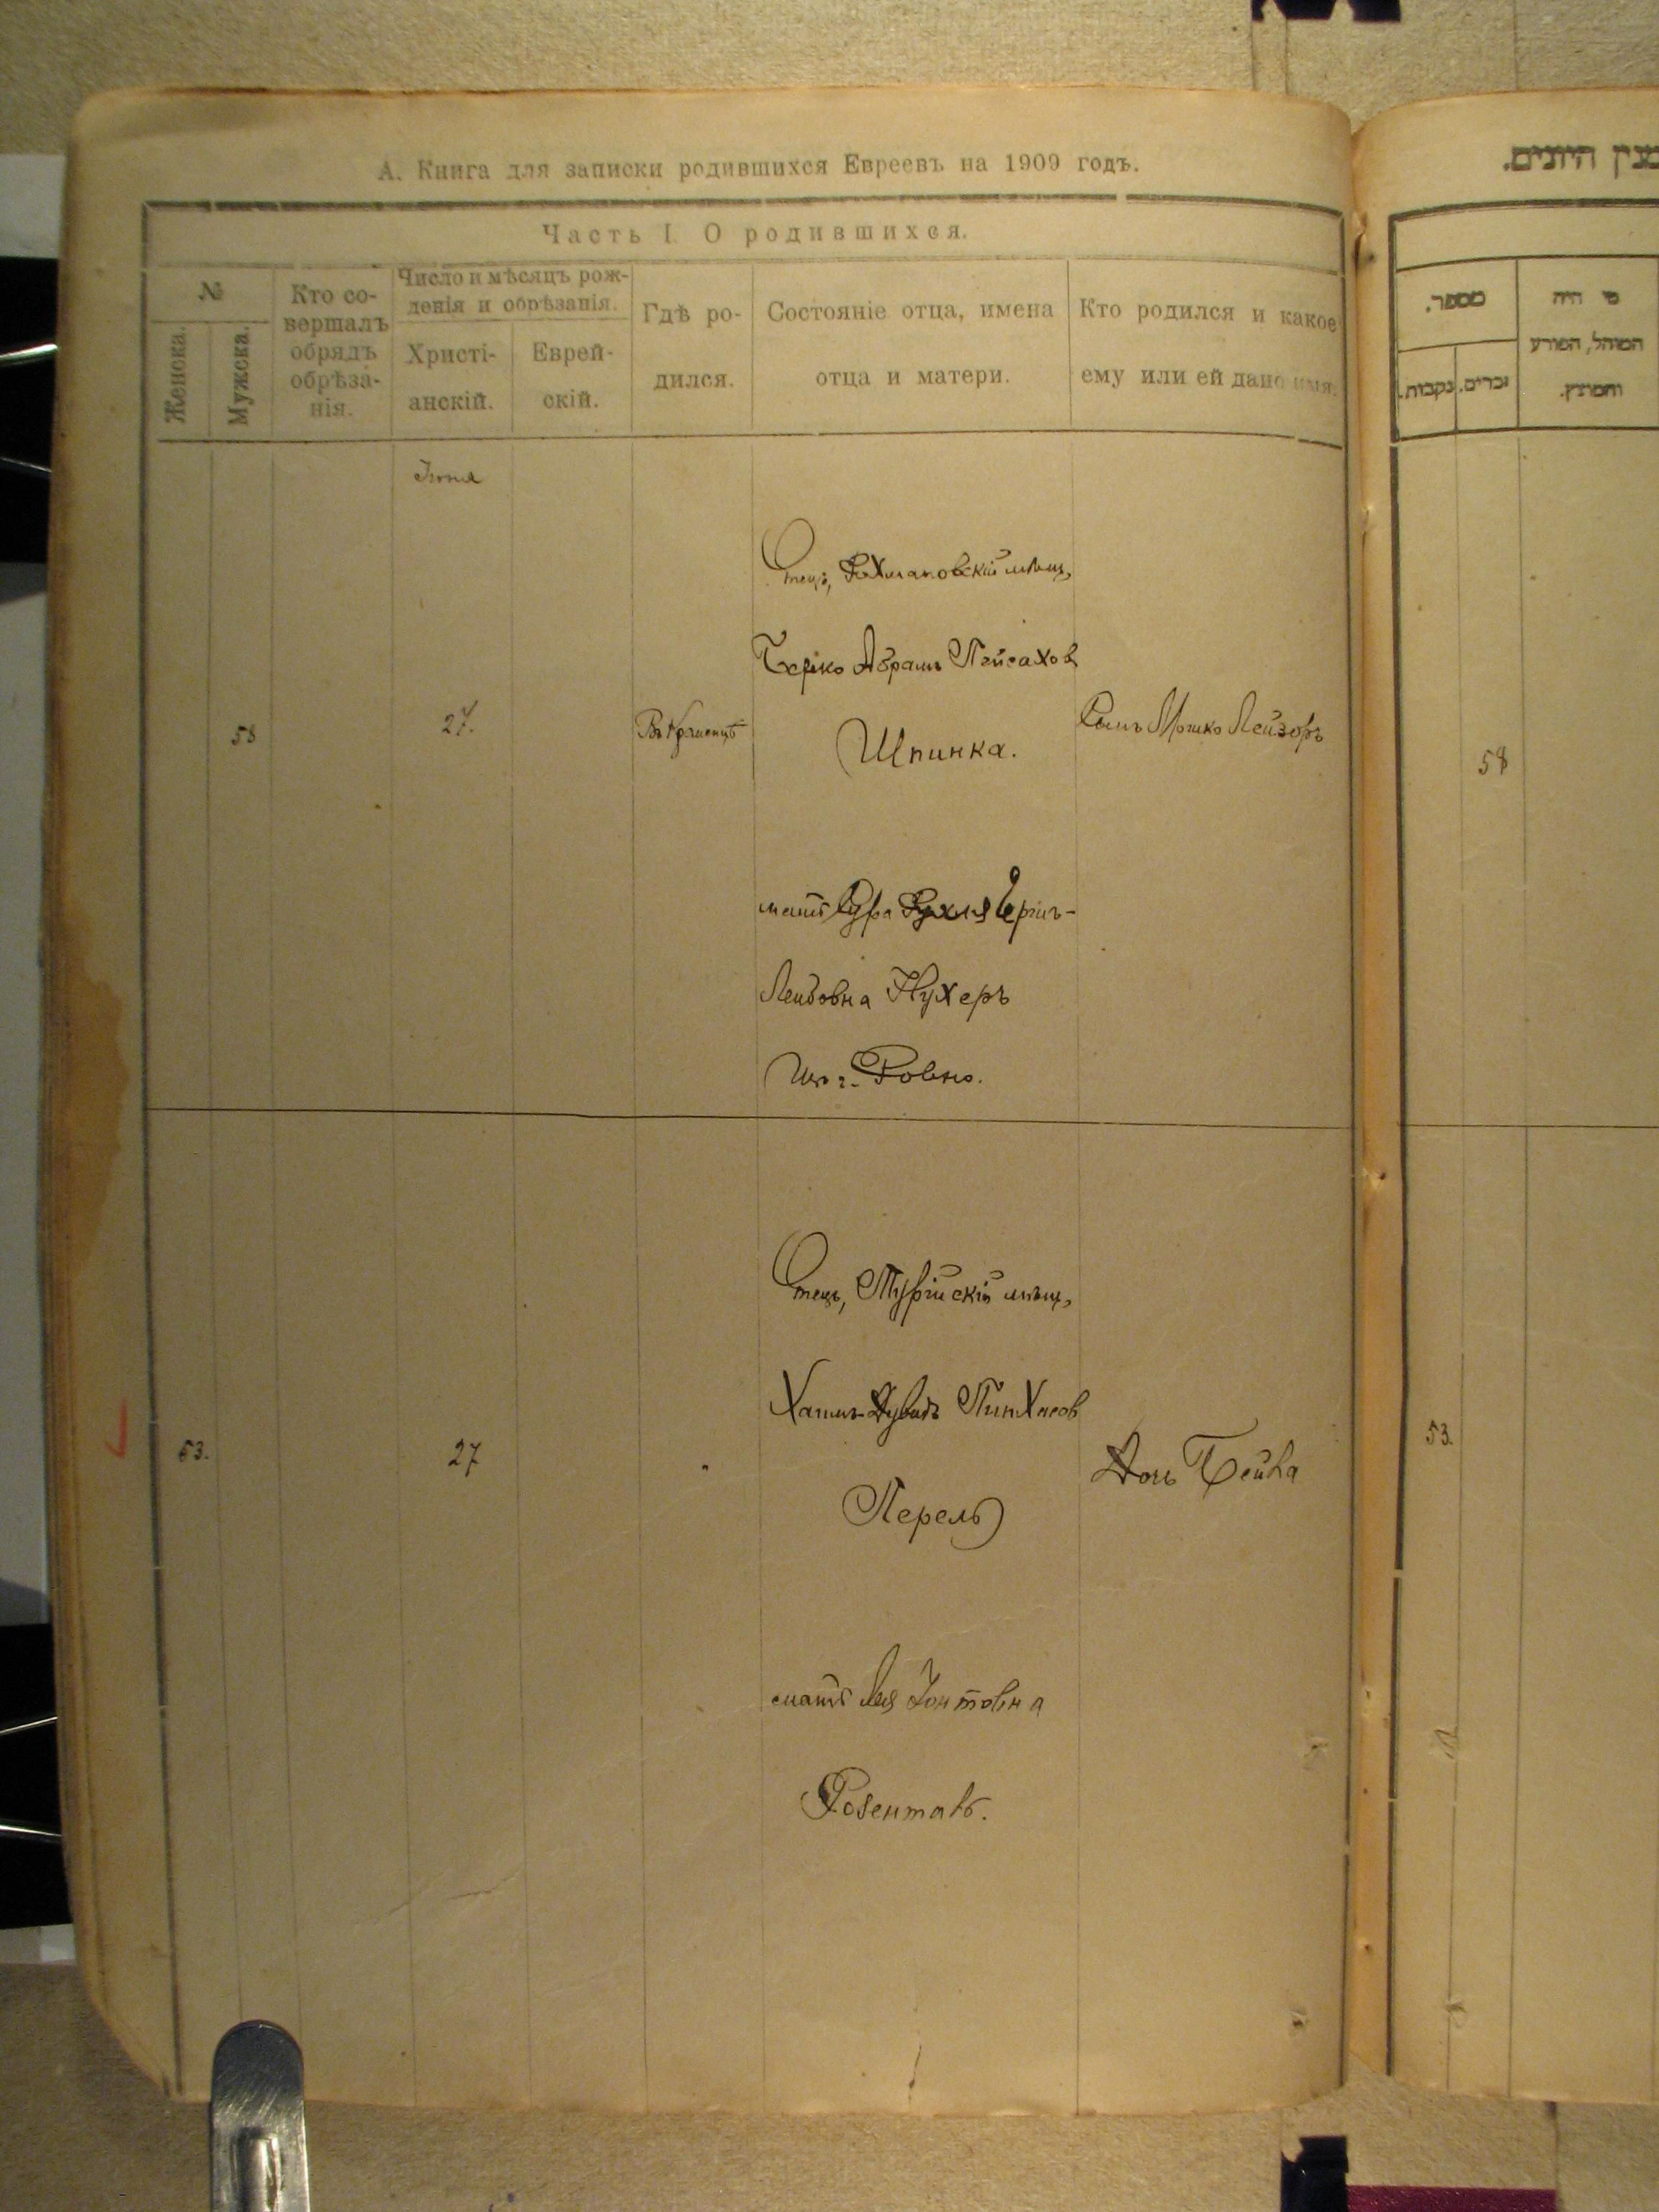 А. Книга для записки родившихся Евреевъ на 1909 годъ.
Часть I. О родившихся.
№
Женска.
Мужска.
Кто со-
вершалъ
обрядъ
обрѣза-
нія.
Число и мѣсяцъ рож-
денія и обрѣзанія.
Христі-
анскій.
Еврей-
скій.
Гдѣ ро-
дился.
Состояніе отца, имена
отца и матери.
Кто родился и какое
ему или ей дано имя.
58
27.
Въ Кременцѣ
Отецъ, Рахмановскій мѣщ,
Берко Абрамъ Пейсахов
Шпинка.
мать Сура Рухля
Лейбовна Нухеръ
Из г. Ровно.
Сынъ Мошко Лейзоръ
53.
27
Отецъ, Турійскій мѣщ,
Хаимъ Дувидъ Пинхасов
Перель
мать Лея Іонтовна
Розенталь.
Дочь Бейла
מספר.
זכרים.
נקבות.
מי היה
המוהל, הפורע
והמוצץ.
58
53.